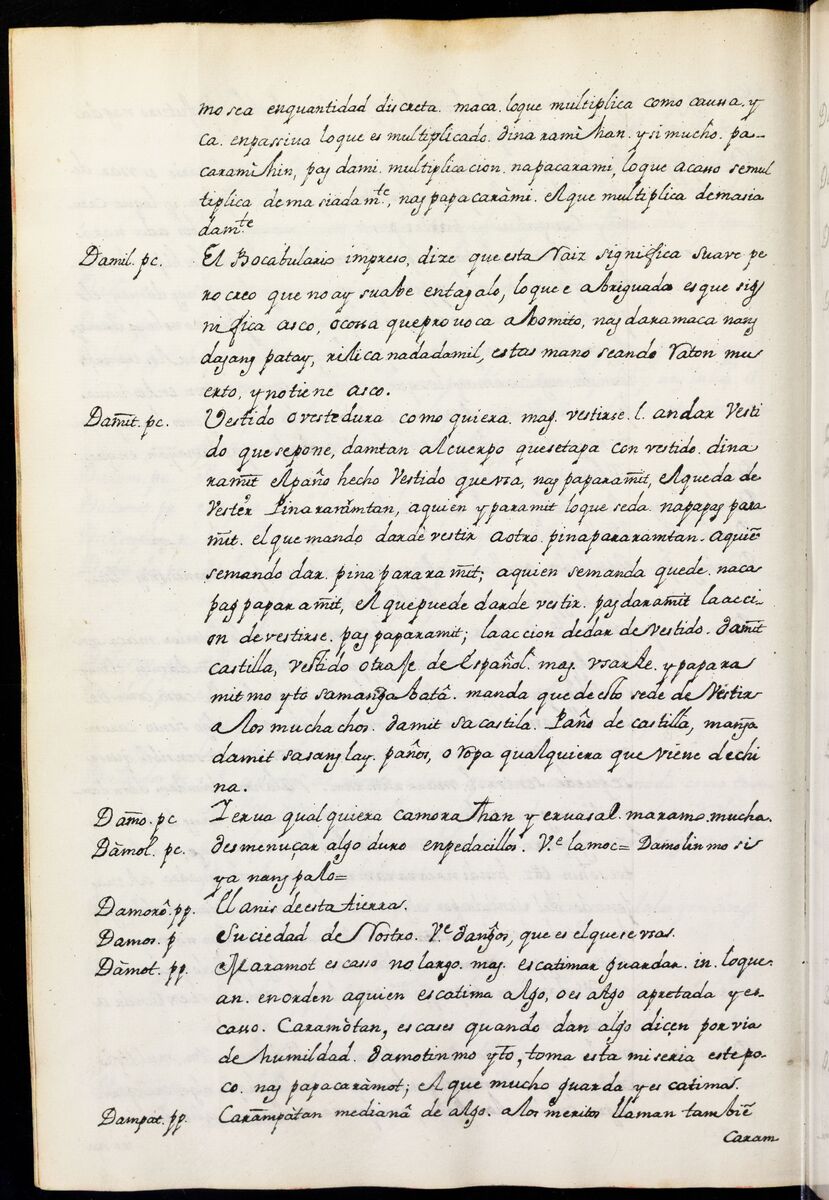 mo sea enquantidad discreta. maca. loque multiplica como caussa. y
ca. enpassiva loque es multiplicado. dina ramihan. ysi mucho. pa-
caramihin, pag dami. multiplicacion. napacarami, loque acasso semul
tiplica demasiadamte, nag papacaràmi. el que multiplica demasia
damte
Damil. pc. El Bocabulario impreso, dize que esta Raiz significa suave pe
ro creo que no ay suabe entagalo, loque e abriguado es que sig
nifica asco, ocossa queprovoca abomito, nag daramaca nang
dagang patay, nadadamil, estas mano seando Raton mu
erto, y notiene asco.
Damit. pc. Vestido o vestedura como quiera. mag. vestirse. l. andar Vesti
do que sepone, damtan alcuerpo quesetapa con vestido. dina
ramit elpaño hecho Vestido que usa, nag paparamit, elqueda de
Vester Pinararamtan, aquien yparamit lo que seda. napapag para
mit. el que mando darde vestir aotro. pinapararamtan. aquiē
semando dar. pinapararamit; aquien semanda quede. naca
pag paparamit, el quepuede darde vestir. pag daramit laacci-
on devestirse. pag paparamit; laaccion dedar deVestido. damit
castilla, vestido otraje de Español. mag. usarle. y papara
mit mo yto samanga batâ. manda que de esto sede de Vestir
a los muchachos. damit sacastila. Paño de castilla, manga
damit sasanglay. paños, o ropa qualquiera que viene dechi
na.
Damo. pc Yerva qualquiera camorahan yervasal. maramo. mucha.
Dàmol. pc. desmenuçar algo duro enpedacillos. Ve. lamoc= Damolin mo si
ya nang palo=
Damorô. pp. El anis deesta tierra.
Damos. p Suciedad de Rostro. Ve. dangos, que es elque se usas.
Dàmot. pp. Maramot escasso no largo. mag. escatimar guardar. in. loque.
an. enorden aquien escatima algo, o es algo apretada y es-
casso. Caramòtan, escases quando dan algo diçen porvia
de humildad. damotin mo yto, toma esta miseria este po-
co. nag papacaràmot; el que mucho guarda y escatimas.
Dampat. pp. Carampàtan medianâ de algo. alos meritos llaman tambiē
Caram